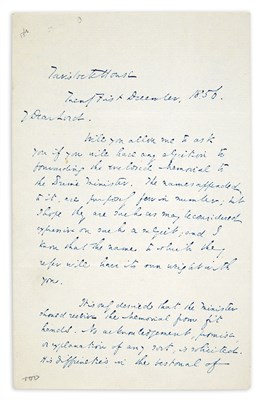 Tavistock House
Twenty First December, 1856.
My Dear Lord.
Will you allow me to ask
you if you will have any objection to
forwarding the enclosed Memorial to
the Prime Minister. The names appended
to it, are purposely few in number, but
I hope they are such as may be considered
expressive on such a subject, and I
know that the names to which they
refer will have its own weight with
you.
It is only desired that the Minister
should receive the Memorial from fit
hands. No acknowledgement, promise
or explanation of any sort, is solicited.
His difficulties in the bestowal of